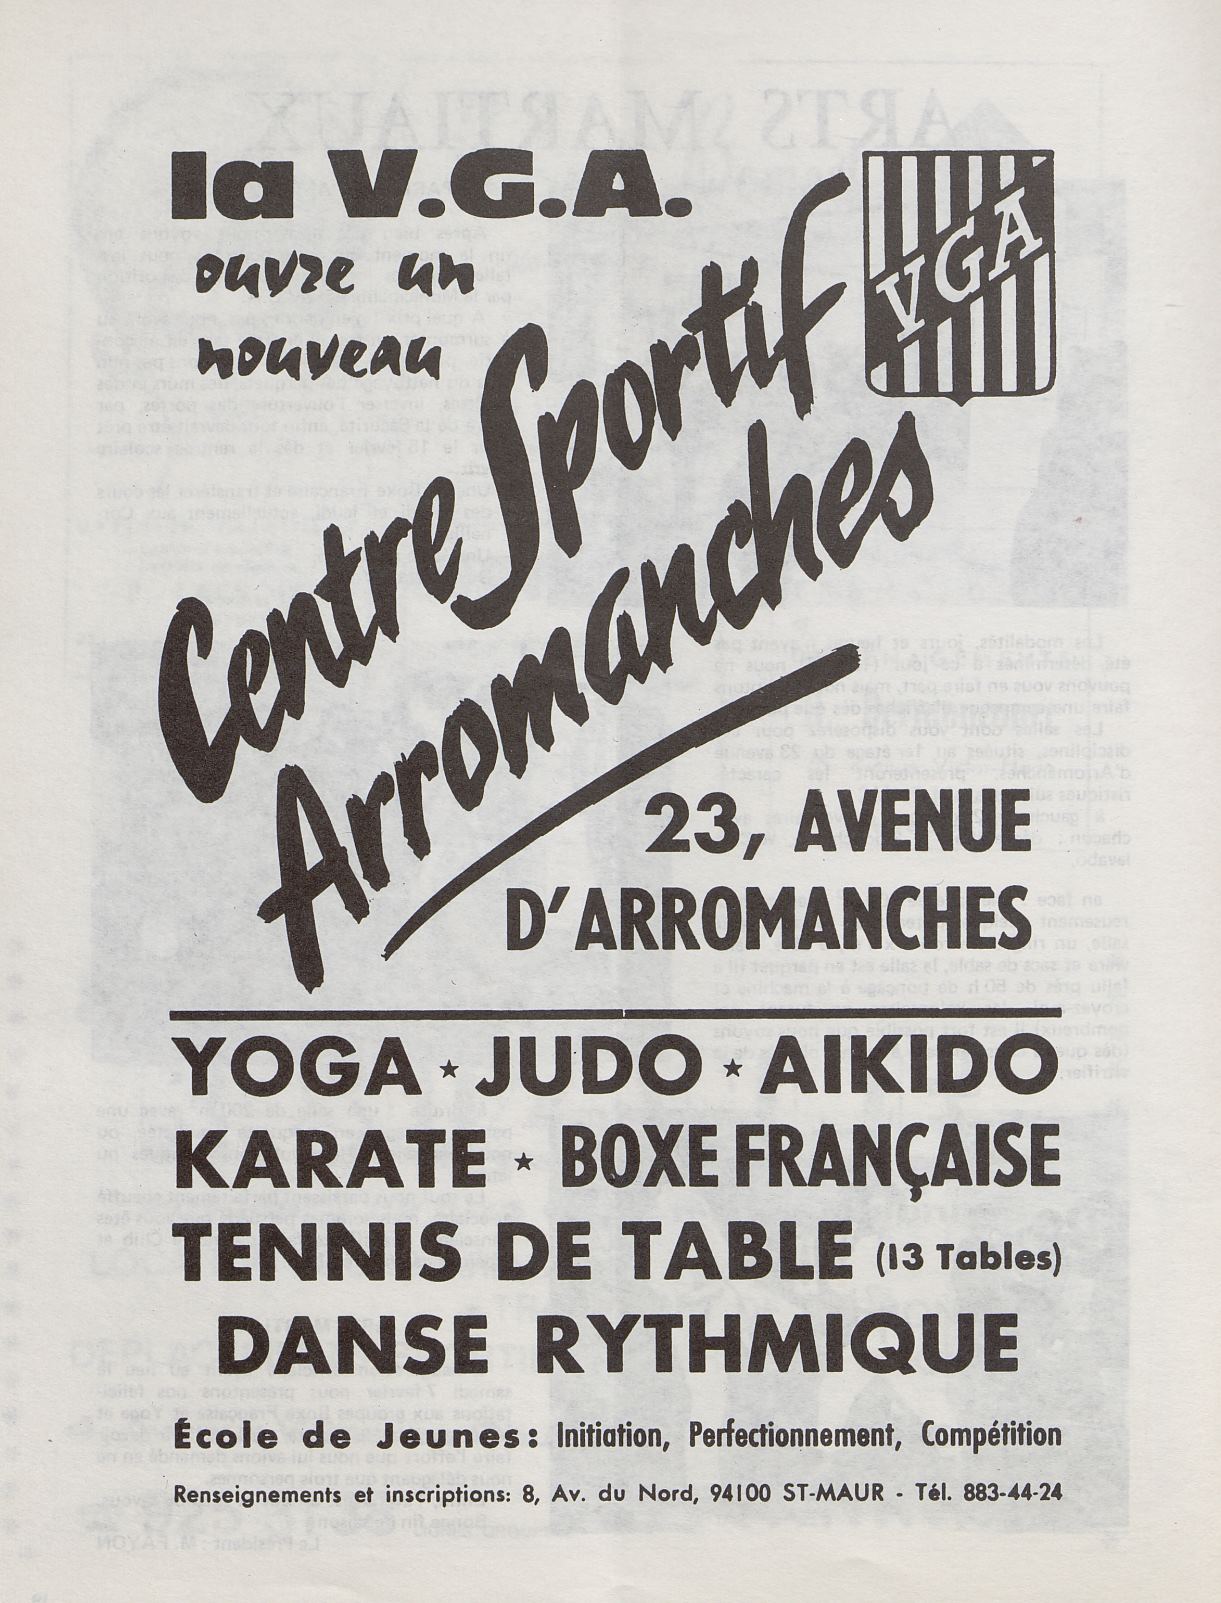 la V.G.A.
ouvre un
nouveau
Centre Sportif
Arromanches
VGA
23, AVENUE
D'ARROMANCHES
YOGA ★ JUDO ★ AIKIDO
KARATE ★ BOXE FRANÇAISE
TENNIS DE TABLE (13 Tables)
DANSE RYTHMIQUE
École de Jeunes: Initiation, Perfectionnement, Compétition
Renseignements et inscriptions: 8, Av. du Nord, 94100 ST-MAUR - Tél. 883-44-24